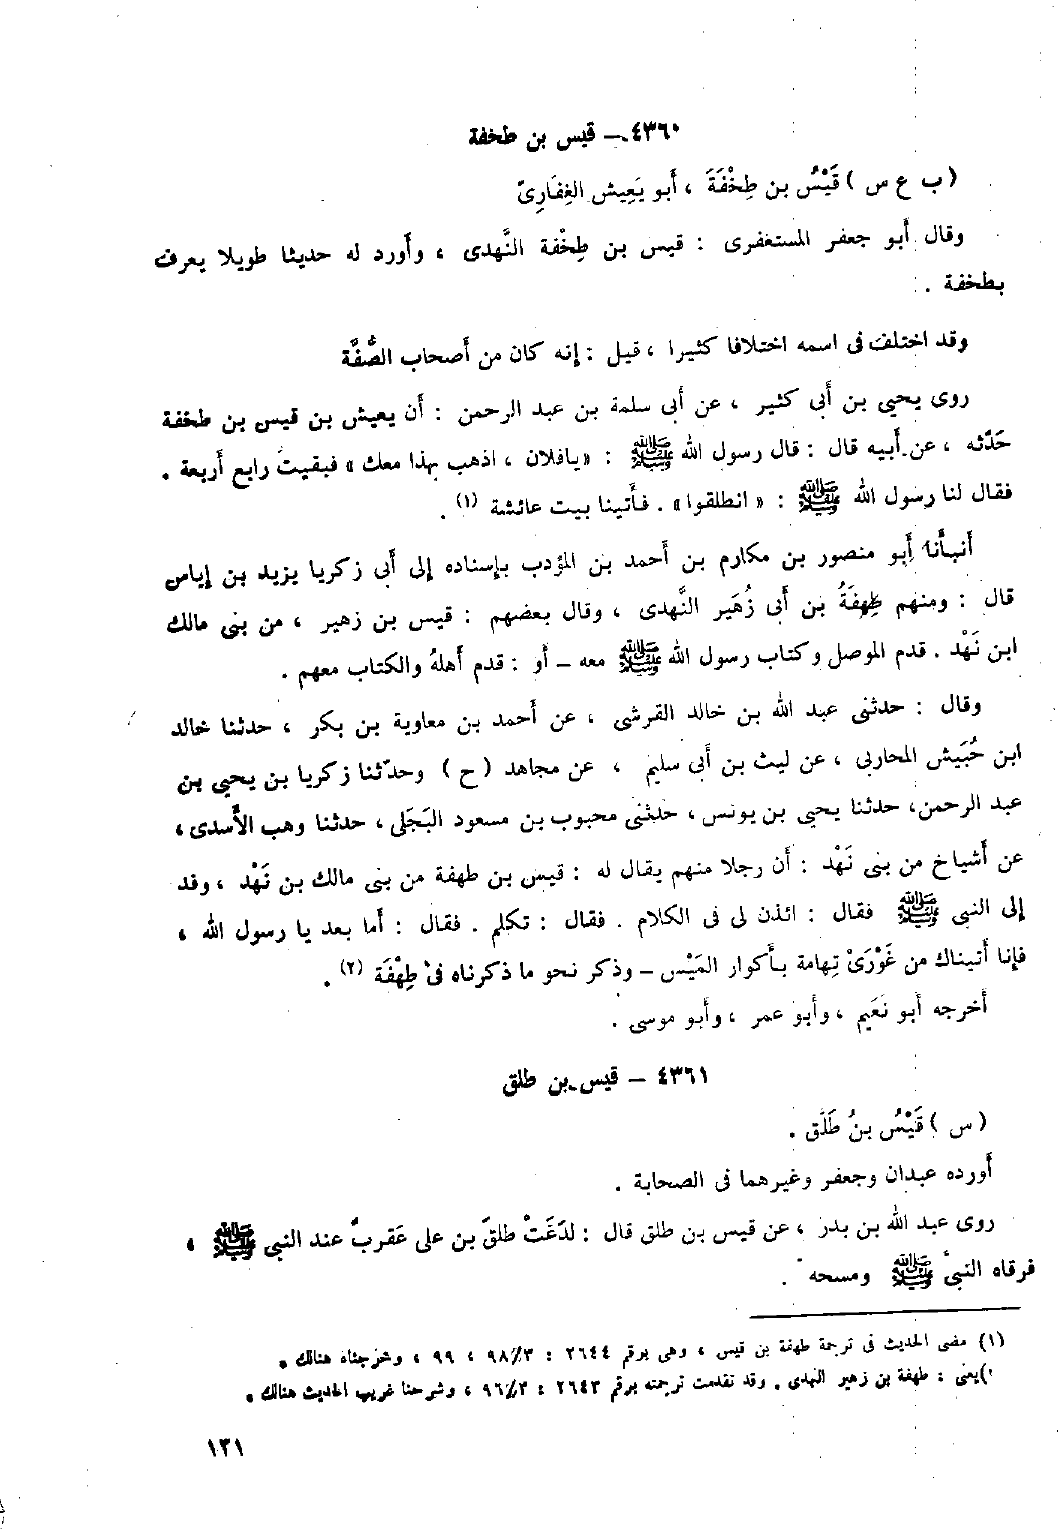 ٤٣٦٠ – قيس بن طخفة
( ب ع س ) قَيْسُ بن طِخْفَةَ ، أبو يَعِيش الغِفَارِىّ
وقال أبو جعفر المستغفرى : قيس بن طِخْفة النَّهدى ، وأورد له حديثا طويلا يعرف
بطخفة .
وقد اختلف فى اسمه اختلافا كثيرا ، قيل : إنه كان من أصحاب الصُّفَّة
روى يحيى بن أبى كثير ، عن أبى سلمة بن عبد الرحمن : أن يعيش بن قيس بن طخفة
حَدّثه ، عن أبيه قال : قال رسول الله ﷺ : «يافلان ، اذهب بهذا معك» فبقيت رابع أربعة .
فقال لنا رسول الله ﷺ : « انطلقوا» . فأتينا بيت عائشة (١) .
أنبأنا أبو منصور بن مكارم بن أحمد بن المؤدب بإسناده إلى أبى زكريا يزيد بن إياس
قال : ومنهم طِهفَةُ بن أبى زُهَير النَّهدى ، وقال بعضهم : قيس بن زهير ، من بنى مالك
ابن نَهْد . قدم الموصل وكتاب رسول الله ﷺ معه – أو : قدم أهلهُ والكتاب معهم .
وقال : حدثنى عبد الله بن خالد القرشى ، عن أحمد بن معاوية بن بكر ، حدثنا خالد
ابن حُبَيش المحاربى ، عن ليث بن أبى سليم ، عن مجاهد ( ح ) وحدّثنا زكريا بن يحيى بن
عبد الرحمن، حدثنا يحيى بن يونس ، حدثنى محبوب بن مسعود البَجَلى ، حدثنا وهب الأسدى ،
عن أشياخ من بنى نَهْد : أن رجلا منهم يقال له : قيس بن طهفة من بنى مالك بن نَهْد ، وفد
إلى النبى ﷺ فقال : ائذن لى فى الكلام . فقال : تكلم . فقال : أما بعد يا رسول الله ،
فإنا أتيناك من غَوْرَىْ تِهامة بأكوار المَيْس – وذكر نحو ما ذكرناه فى طِهْفَة (٢) .
أخرجه أبو نَعَيم ، وأبو عمر ، وأبو موسى .
٤٣٦١ – قيس بن طلق
( س ) قَيْسُ بنُ طَلَق .
أورده عبدان وجعفر وغيرهما فى الصحابة .
روى عبد الله بن بدر ، عن قيس بن طلق قال : لَدَغَتْ طلقَ بن على عَقربٌ عند النبى ﷺ ،
فرقاه النبىّ ﷺ ومسحه .
(١) مضى الحديث فى ترجمة طهفة بن قيس ، وهى برقم ٢٦٤٤ : ٣/ ٩٨ ، ٩٩ ، وخرجناه هنالك .
)يعنى : طهفة بن زهير النهدى . وقد تقدمت ترجمته برقم ٢٦٤٣ : ٣/ ٩٦ ، وشرحنا غريب الحديث هنالك .
١٣١